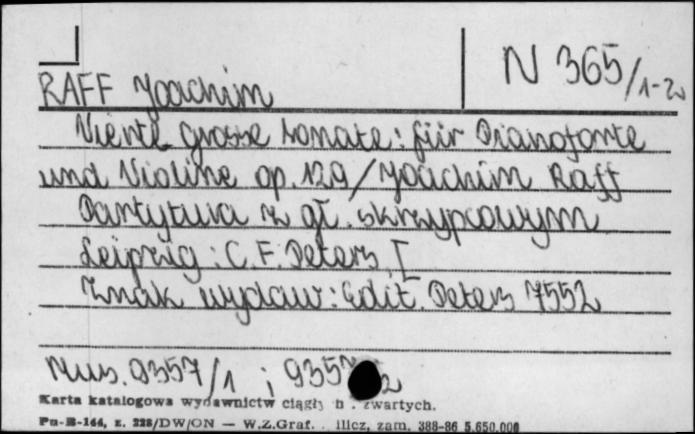 N 365/1-2
RAFF Joachim
Vierte grosse Sonate: für Pianoforte
und Violine op. 129/Joachim Raff
Partytura z gł. skrzypcowym
Leipzig: C.F. Peters, [
Znak wydaw: Edit. Peters 7552
Mus. 9357/1 i 9357 2
Karta katalogowa wydawnictw ciągłych . zwartych.
Pu-B-144, z. 228/DW/ON — W.Z.Graf. zam. 388-86 5.650.000